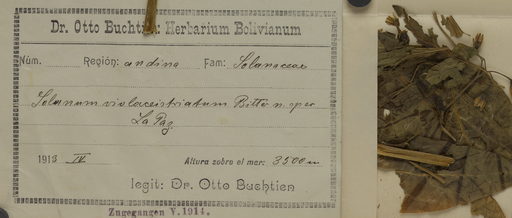 Dr. Otto Buchtien: Herbarium Bolivianum
Núm. Región: andina Fam: Solanaceae
Solanum violaceistriatum Bitter n. spec
La Paz
1913 IV Altura sobre el mar: 3500 m
legit: Dr. Otto Buchtien
Zugegangen V.1914.